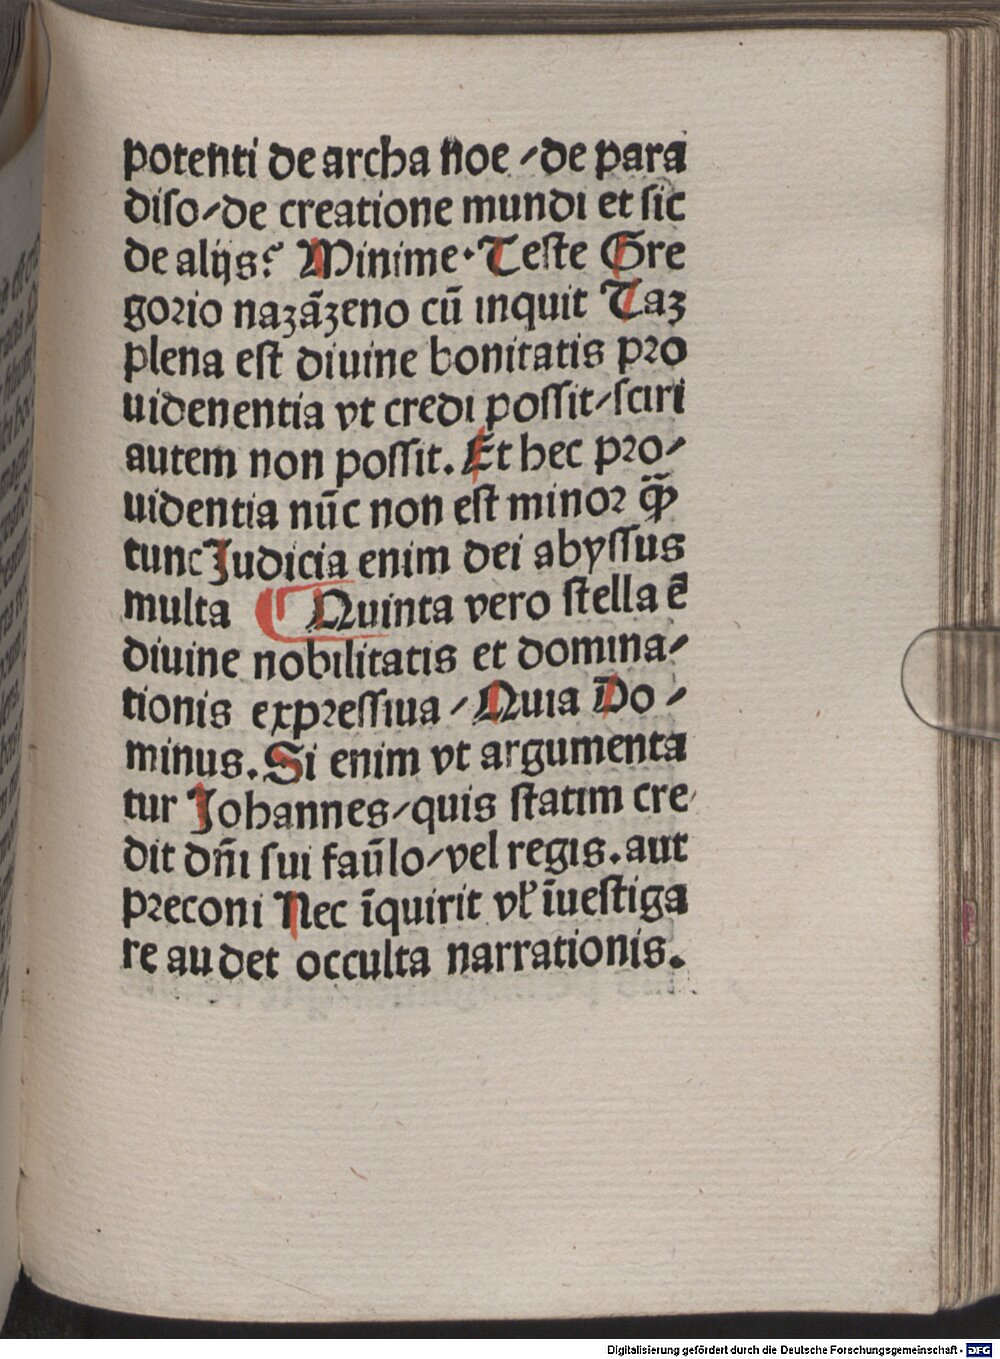 potenti de archa noe / de para
diso / de creatione mundi et sic
de alijs? Minime. Teste Gre
gorio nazāzeno cū inquit Taz
plena est diuine bonitatis pro
uidenentia vt credi possit / sciri
autem non possit. Et hec pro/
uidentia nūc non est minor q̄ꝫ
tunc Judicia enim dei abyssus
multa ¶ Quinta vero stella ē
diuine nobilitatis et domina/
tionis expressiua / Quia Do /
minus. Si enim vt argumenta
tur Johannes / quis statim cre
dit dn̄i sui faūlo / vel regis. aut
preconi Nec īquirit vł īuestiga
re audet occulta narrationis.
Digitalisierung gefördert durch die Deutsche Forschungsgemeinschaft - DFG